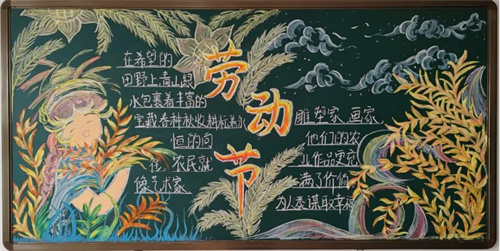 劳动节
在希望的
田野上青山绿
水包裹着丰富的
宝藏各种秋收耕耘和
恒的向
往,农民就
像艺术家
雕塑家 画家
他们的农
业作品更充
满了价值
为人类谋取幸福